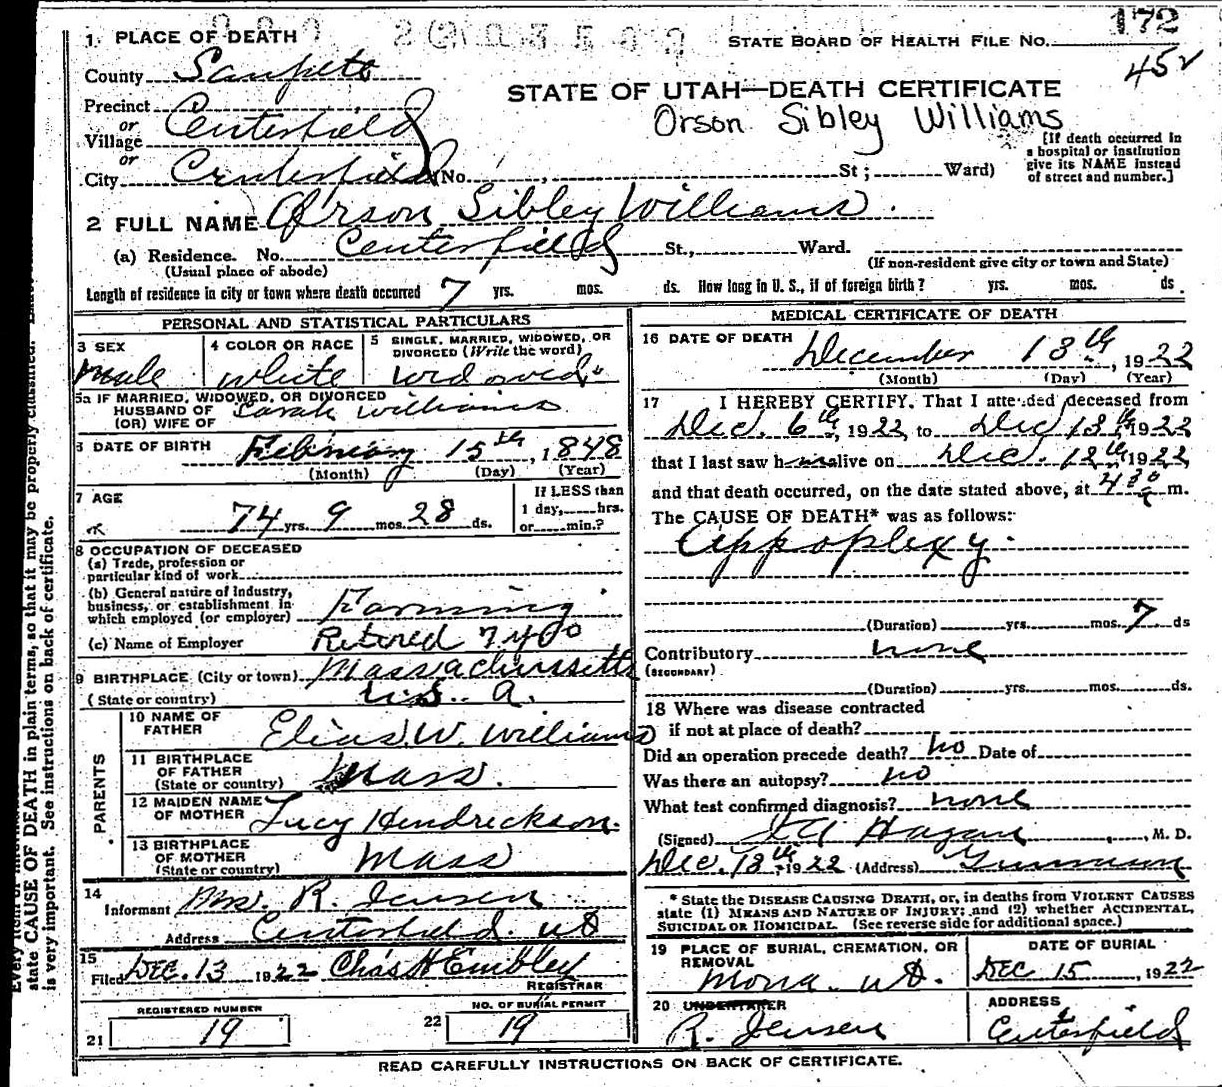 172
1. PLACE OF DEATH
STATE BOARD OF HEALTH FILE NO.
452
County Sanpete
STATE OF UTAH—DEATH CERTIFICATE
Precinct Centerfield
or
Village
Orson Sibley Williams
[If death occurred in
a hospital or institution
give its NAME instead
of street and number.]
or
City Centerfield (No. , St; Ward)
2 FULL NAME Orson Sibley Williams.
(a) Residence. No. Centerfield St., Ward.
(Usual place of abode) (If non-resident give city or town and State)
Length of residence in city or town where death occurred 7 yrs. mos. ds. How long in U. S., if of foreign birth? yrs. mos. ds.
PERSONAL AND STATISTICAL PARTICULARS
3 SEX
Male
4 COLOR OR RACE
White
5 SINGLE, MARRIED, WIDOWED, OR
DIVORCED (Write the word)
Widowed
5a IF MARRIED, WIDOWED, OR DIVORCED
HUSBAND OF Sarah Williams
(OR) WIFE OF
6 DATE OF BIRTH February 15th, 1848
(Month) (Day) (Year)
7 AGE
74 yrs. 9 mos. 28 ds.
If LESS than
1 day, hrs.
or min.?
8 OCCUPATION OF DECEASED
(a) Trade, profession or
particular kind of work
(b) General nature of Industry,
business, or establishment in
which employed (or employer) Farming
(c) Name of Employer Retired
9 BIRTHPLACE (City or town) Massachussetts
(State or country) U.S. A.
PARENTS
10 NAME OF
FATHER Elias W. Williams
11 BIRTHPLACE
OF FATHER
(State or country) Mass.
12 MAIDEN NAME
OF MOTHER Lucy Hendrickson.
13 BIRTHPLACE
OF MOTHER
(State or country) Mass
14
Informant Mrs. R. Jensen
Address Centerfield. Ut
15
Filed DEC. 13 1922 Chas H Embley
REGISTRAR
REGISTERED NUMBER
21 19
NO. OF BURIAL PERMIT
22 19
MEDICAL CERTIFICATE OF DEATH
16 DATE OF DEATH
December 13th, 1922
(Month) (Day) (Year)
17 I HEREBY CERTIFY, That I attended deceased from
Dec. 6th, 1922, to Dec 13th, 1922
that I last saw him alive on Dec. 12th 1922
and that death occurred, on the date stated above, at 430 a m.
The CAUSE OF DEATH* was as follows:
Appoplexy.
(Duration) yrs. mos. 7 ds
Contributory none
(SECONDARY)
(Duration) yrs. mos. ds.
18 Where was disease contracted
if not at place of death?
Did an operation precede death? No Date of
Was there an autopsy? no
What test confirmed diagnosis? none
(Signed) Hagan, M. D.
Dec. 13th 1922 (Address) Gunnison
* State the DISEASE CAUSING DEATH, or, in deaths from VIOLENT CAUSES
state (1) MEANS AND NATURE OF INJURY; and (2) whether ACCIDENTAL,
SUICIDAL OR HOMICIDAL. (See reverse side for additional space.)
19 PLACE OF BURIAL, CREMATION, OR
REMOVAL
Mona. Ut.
DATE OF BURIAL
DEC 15, 1922
20 UNDERTAKER
R. Jensen
ADDRESS
Centerfield
READ CAREFULLY INSTRUCTIONS ON BACK OF CERTIFICATE.
state CAUSE OF DEATH in plain terms, so that it may be properly classified.
is very important. See instructions on back of certificate.